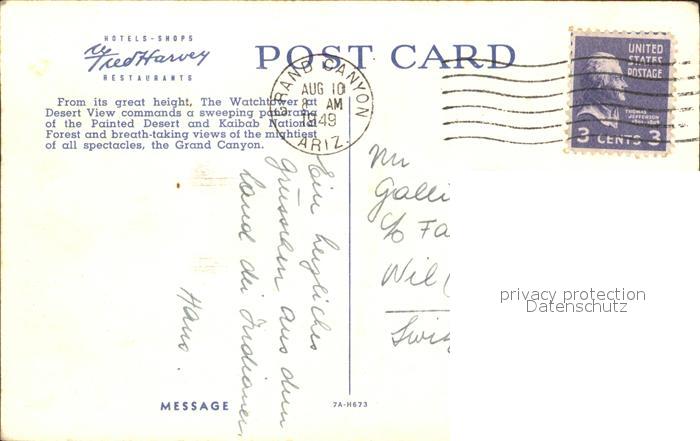 HOTELS-SHOPS
Fred Harvey
RESTAURANTS
POST CARD
From its great height, The Watchtower at
Desert View commands a sweeping panorama
of the Painted Desert and Kaibab National
Forest and breath-taking views of the mightiest
of all spectacles, the Grand Canyon.
GRAND CANYON
AUG 10
8 AM
1949
ARIZ.
UNITED
STATES
POSTAGE
THOMAS
JEFFERSON
3 CENTS 3
Ein herzliches
Grüsschen aus dem
Land der Indianer.
Hans.
Mr
Galli
c/o Fa
Wil
privacy protection
Datenschutz
MESSAGE
7A-H673